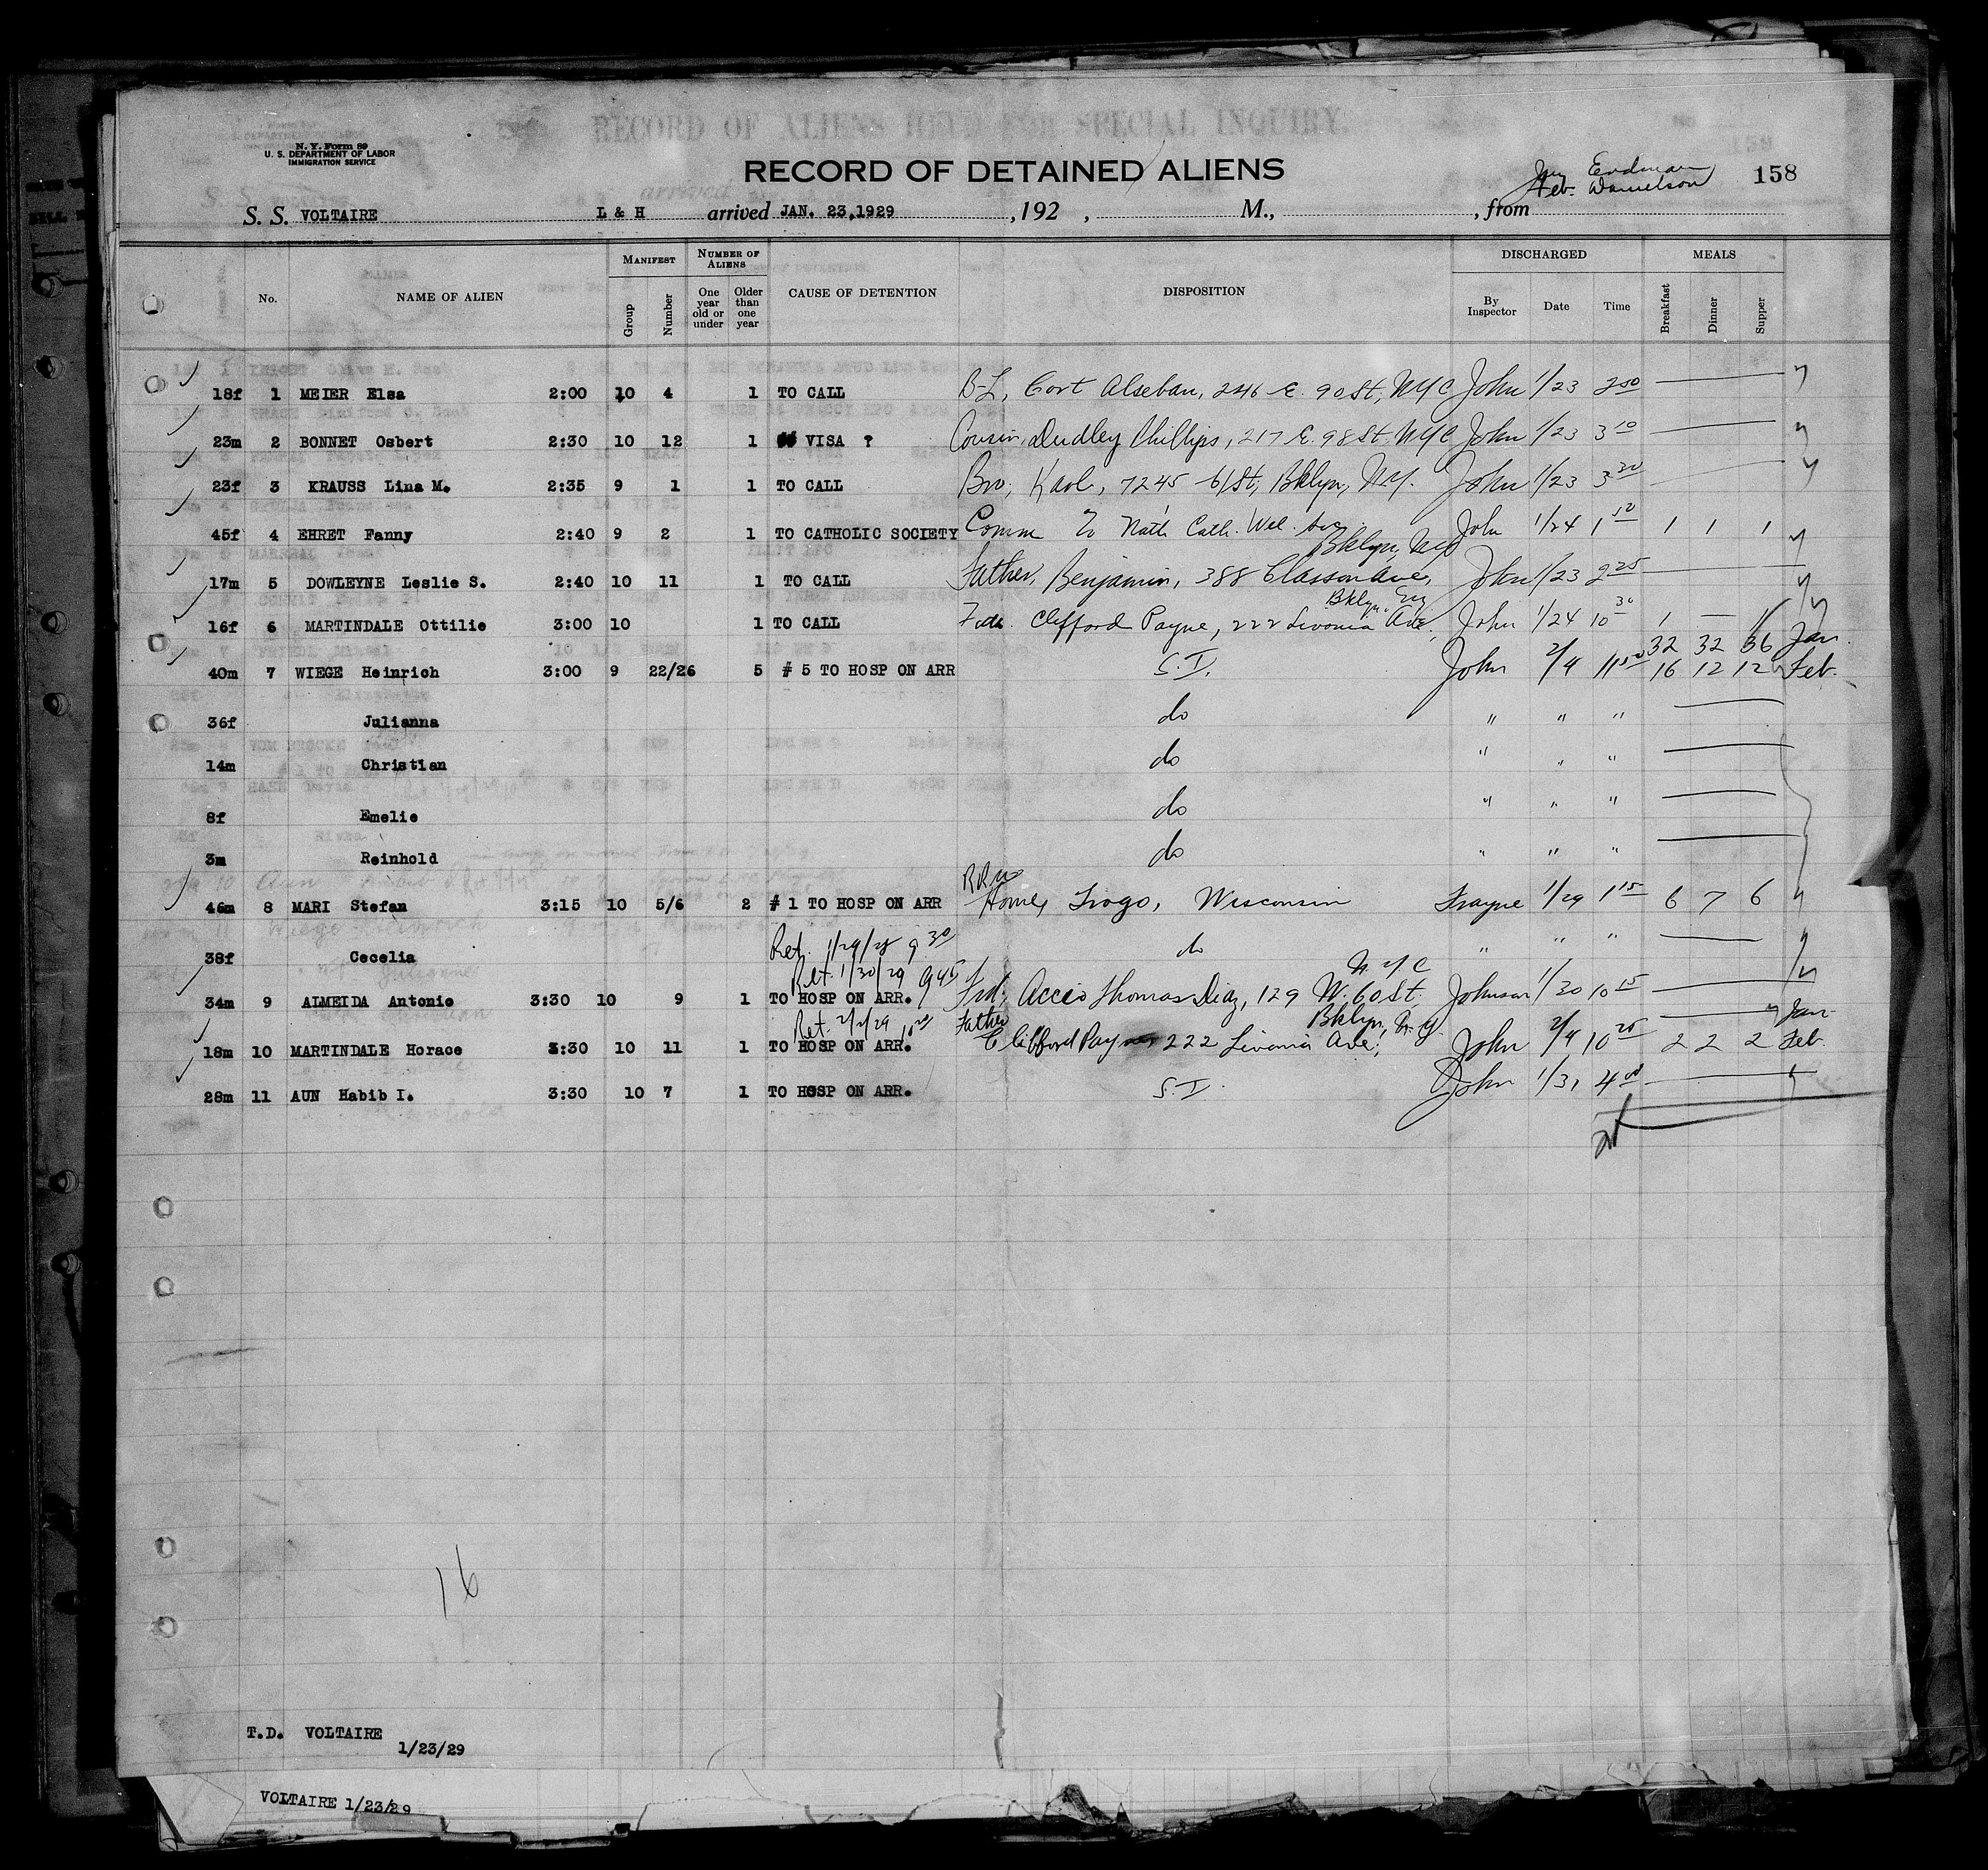 RECORD OF ALIENS HELD FOR SPECIAL INQUIRY.
N. Y. Form 89
U. S. DEPARTMENT OF LABOR
IMMIGRATION SERVICE
RECORD OF DETAINED ALIENS
Jan Erdman
Feb. Danielson
158
S. S. VOLTAIRE L & H arrived JAN. 23,1929 ,192 , M., , from
No. NAME OF ALIEN MANIFEST Group Number NUMBER OF ALIENS One year old or under Older than one year CAUSE OF DETENTION DISPOSITION DISCHARGED By Inspector Date Time MEALS Breakfast Dinner Supper
18f 1 MEIER Elsa 2:00 10 4 1 TO CALL B-L, Cort Alseban, 246 E. 90 St, NYC John 1/23 2 50
23m 2 BONNET Osbert 2:30 10 12 1 VISA ? Cousin, Dudley Phillips, 217 E. 98 St, NYC John 1/23 3 10
23f 3 KRAUSS Lina M. 2:35 9 1 1 TO CALL Bro, Karl, 7245 61 St, Bklyn, N.Y. John 1/23 3 20
45f 4 EHRET Fanny 2:40 9 2 1 TO CATHOLIC SOCIETY Comm to Natl Cath. Wel. John 1/24 1 1 1
Bklyn, NY
17m 5 DOWLEYNE Leslie S. 2:40 10 11 1 TO CALL Father, Benjamin, 388 Classon Ave, John 1/23 2 25
Bklyn. NY
16f 6 MARTINDALE Ottilie 3:00 10 1 TO CALL Clifford Payne, 222 Livonia Ave. John 1/24 10 30 1 — 1
32 32 36 Jan.
40m 7 WIEGE Heinrich 3:00 9 22/26 5 # 5 TO HOSP ON ARR S.I. John 2/4 16 12 12 Feb.
36f Julianna do " " "
14m Christian do " " "
8f Emelie do " " "
3m Reinhold do " " "
46m 8 MARI Stefan 3:15 10 5/6 2 # 1 TO HOSP ON ARR Home, Tiogo, Wisconsin Frayne 1/29 1 15 6 7 6
38f Cecelia Ret. 1/29/28 9 30 do " " "
Ret. 1/30/29 9 45 N.Y.C
34m 9 ALMEIDA Antonio 3:30 10 9 1 TO HOSP ON ARR. Frd, Accio Thomas Diaz, 129 W. 60 St. Johnson 1/30 10 15
Ret. 2/2/29 10 20 Father Bklyn, N.Y. Jan
18m 10 MARTINDALE Horace 3:30 10 11 1 TO HOSP ON ARR. Clifford Payne 222 Livonia Ave, John 2/4 10 25 2 2 2 Feb.
28m 11 AUN Habib I. 3:30 10 7 1 TO HOSP ON ARR. S.I. John 1/31 4 00
16
T.D. VOLTAIRE
1/23/29
VOLTAIRE 1/23/29